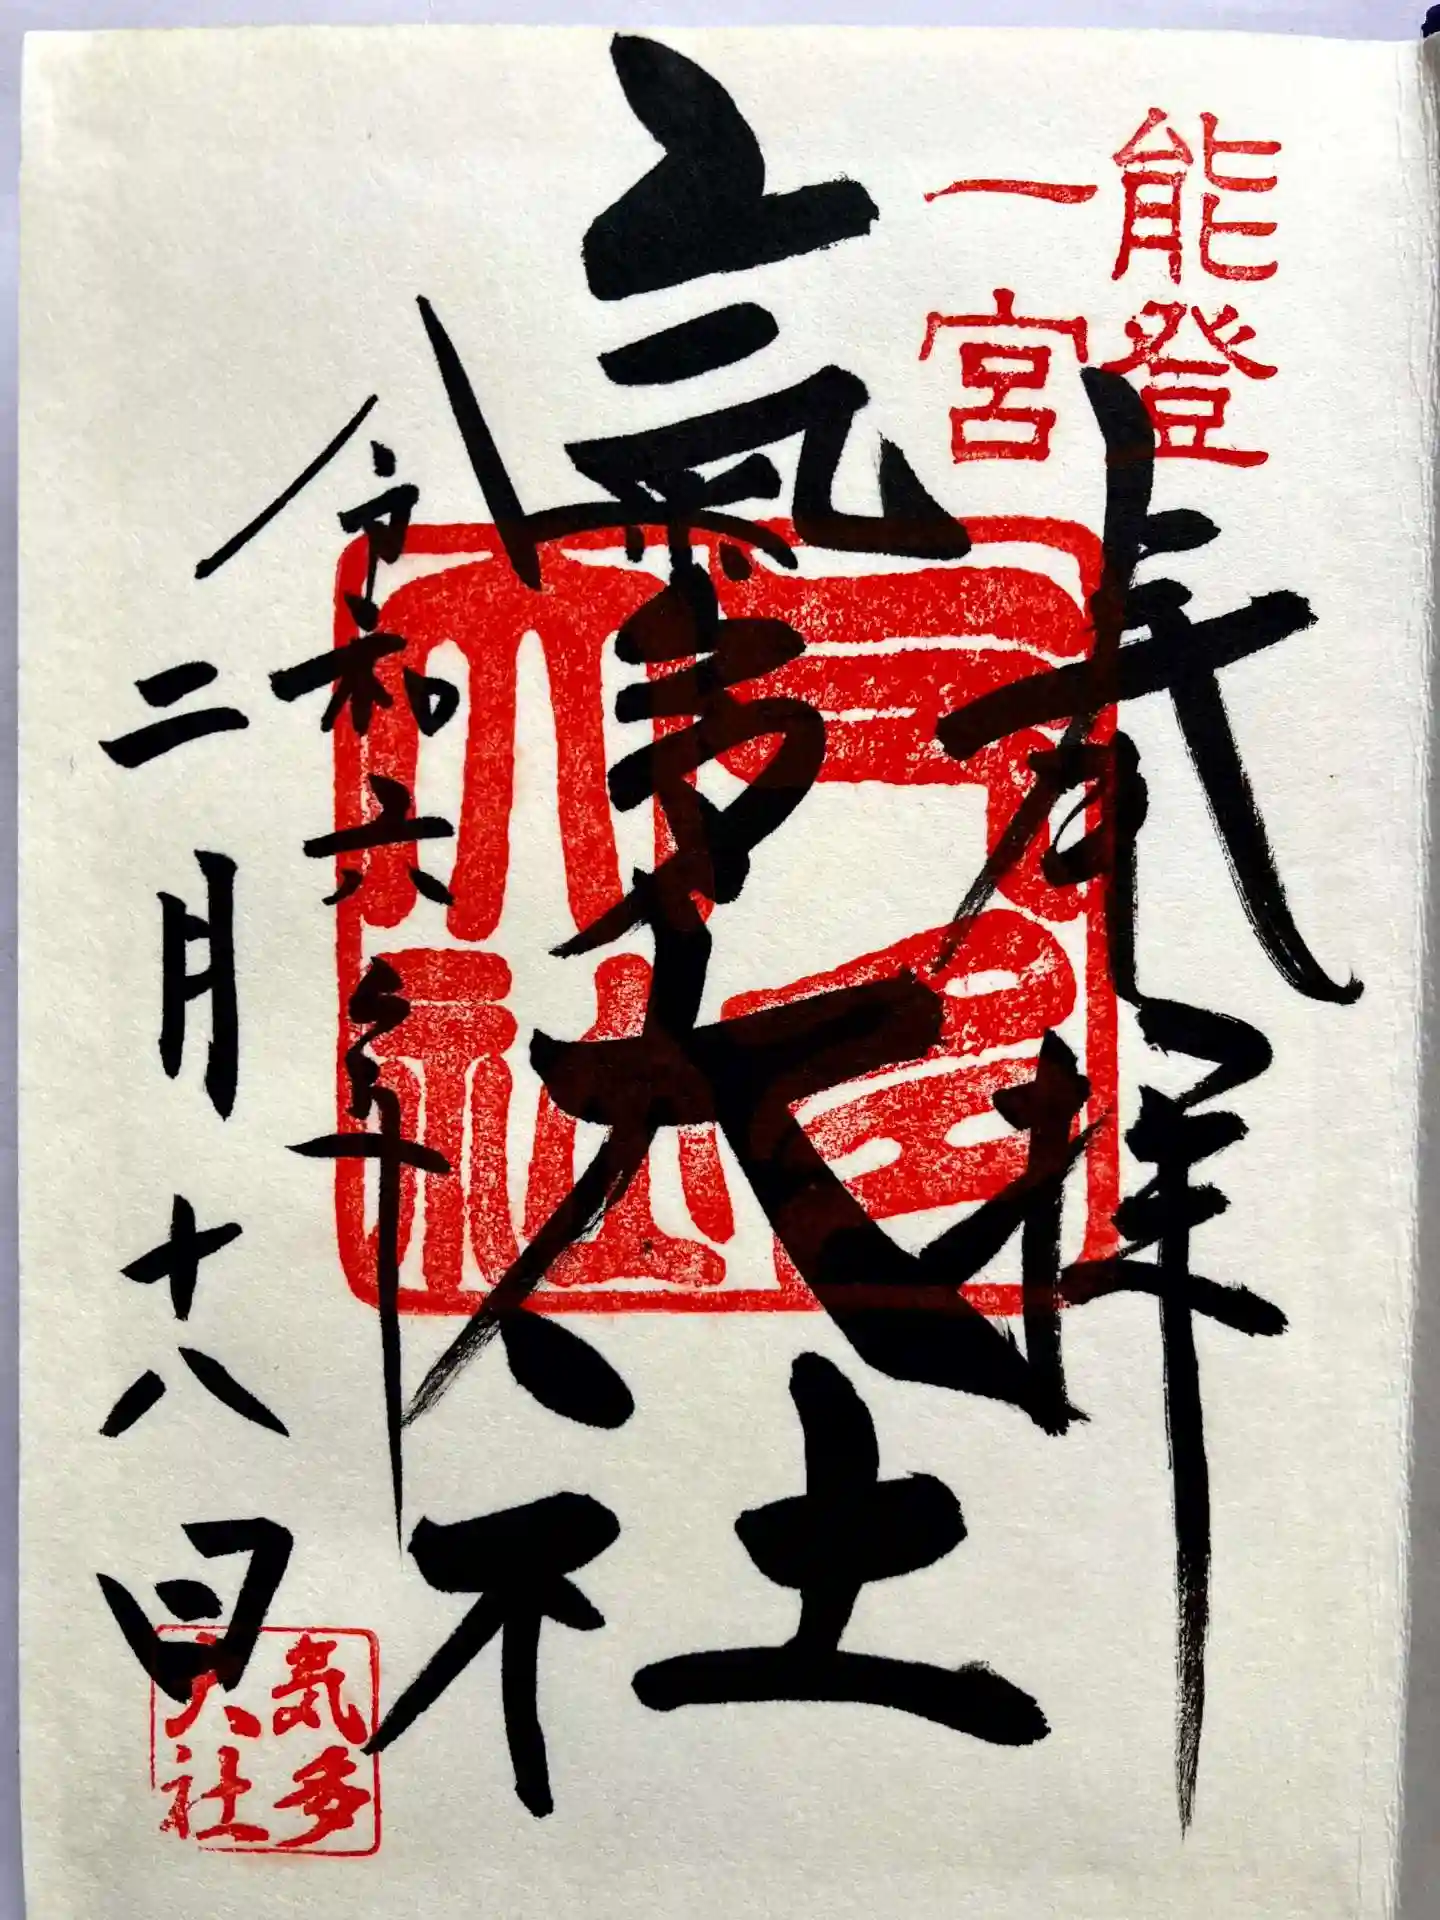 能登
一宮
奉拝
氣多大社
令和六年
二月十八日
気多
大社